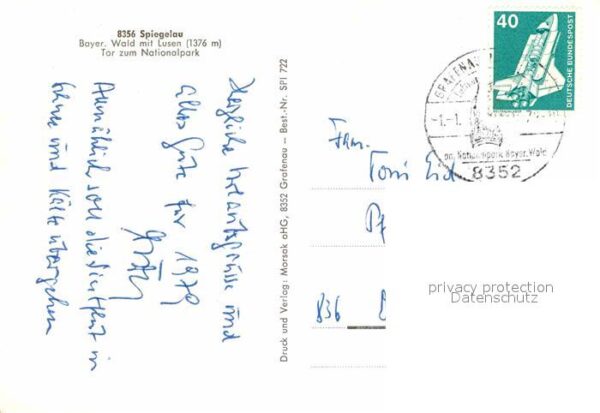 8356 Spiegelau
Bayer. Wald mit Lusen (1376 m)
Tor zum Nationalpark
Herzliche Urlaubsgrüsse und
alles Gute für 1979
Allmählich soll die Sintflut in
Schnee und Kälte übergehen
Druck und Verlag: Morsak oHG, 8352 Grafenau — Best.-Nr. SPI 722
40
DEUTSCHE BUNDESPOST
GRAFENA
-1.-1.
Nationalpark Bayer. Wald
8352
Fam.
Toni Eid
Pf
836 E
privacy protection
Datenschutz